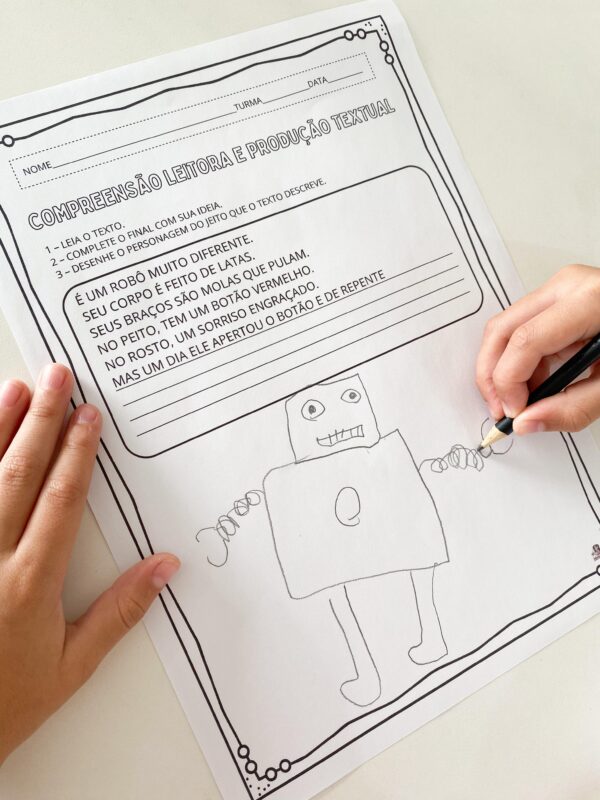 NOME____________________TURMA__________DATA________
COMPREENSÃO LEITORA E PRODUÇÃO TEXTUAL
1 – LEIA O TEXTO.
2 – COMPLETE O FINAL COM SUA IDEIA.
3 – DESENHE O PERSONAGEM DO JEITO QUE O TEXTO DESCREVE.
É UM ROBÔ MUITO DIFERENTE.
SEU CORPO É FEITO DE LATAS.
SEUS BRAÇOS SÃO MOLAS QUE PULAM.
NO PEITO, TEM UM BOTÃO VERMELHO.
NO ROSTO, UM SORRISO ENGRAÇADO.
MAS UM DIA ELE APERTOU O BOTÃO E DE REPENTE